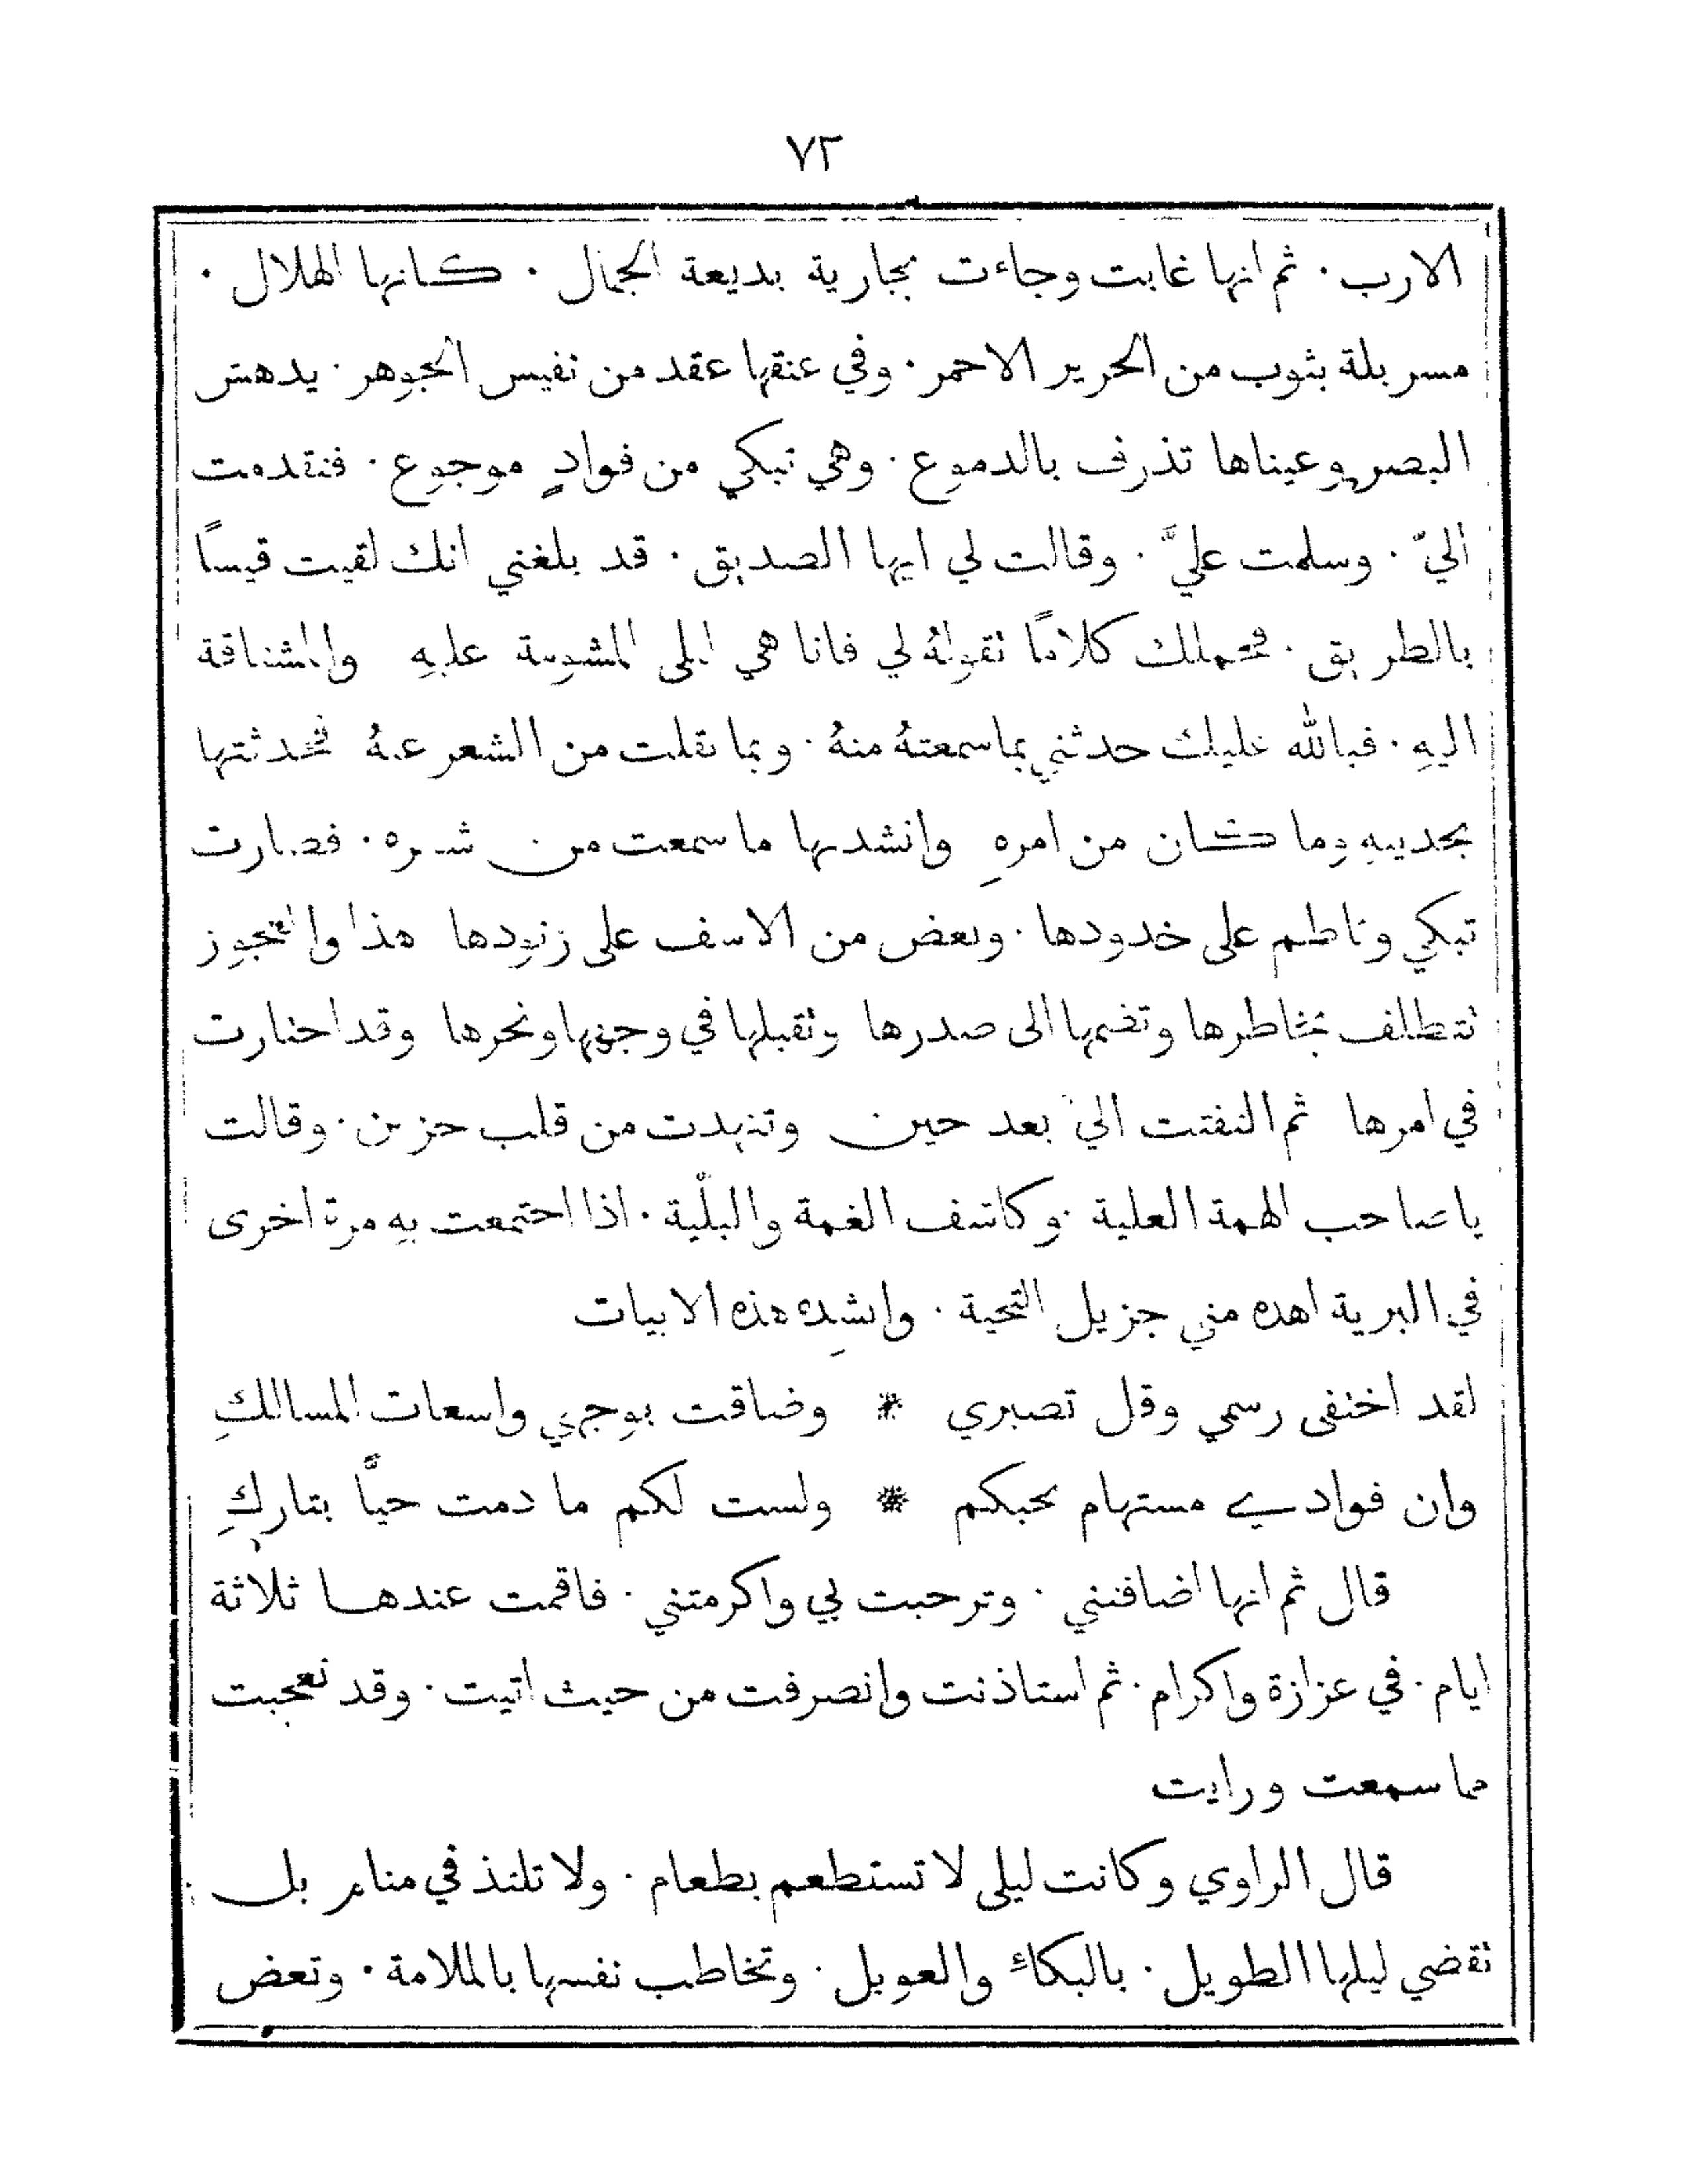 ٧٣
الارب · ثم انها غابت وجاءت بجارية بديعة الجمال · كانها الهلال ·
مسربلة بثوب من الحرير الاحمر · وفي عنقها عقد من نفيس الجوهر · يدهش
البصر وعيناها تذرف بالدموع · وهي تبكي من فوادٍ موجوع · فتقدمت
اليّ · وسلمت عليَّ · وقالت لي ايها الصديق · قد بلغني انك لقيت قيسًا
بالطريق · فحملك كلامًا تقولهُ لي فانا هي ليلى المشومة عليهِ والمشتاقة
اليهِ · فبالله عليك حدثني بما سمعتهُ منهُ · وبما نقلت من الشعر عنهُ فحدثتها
بحديثهِ وما كان من امرهِ وانشدتها ما سمعت من شعره · فصارت
تبكي وتلطم على خدودها · وتعض من الاسف على زنودها هذا والعجوز
تتطلف بخاطرها وتضمها الى صدرها وتقبلها في وجهها ونحرها وقد احتارت
في امرها ثم التفتت اليَّ بعد حين وتنهدت من قلب حزين · وقالت
يا صاحب الهمة العلية · وكاشف الغمة والبلّية · اذا اجتمعت بهِ مرة اخرى
في البرية اهده مني جزيل التحية · وانشدِه هذه الابيات
لقد اختفى رسمي وقل تصبري * وضاقت بوجهي واسعات المسالكِ
وان فوادي مستهام بحبكم * ولست لكم ما دمت حيًّا بتاركِ
قال ثم انها اضافتني · وترحبت بي واكرمتني · فاقمت عندها ثلاثة
ايام · في عزازة واكرام · ثم استاذنت وانصرفت من حيث اتيت · وقد تعجبت
مما سمعت ورايت
قال الراوي وكانت ليلى لا تستطعم بطعام · ولا تلتذ في منام بل
تقضي ليلها الطويل · بالبكاء والعويل · وتخاطب نفسها بالملامة · وتعض